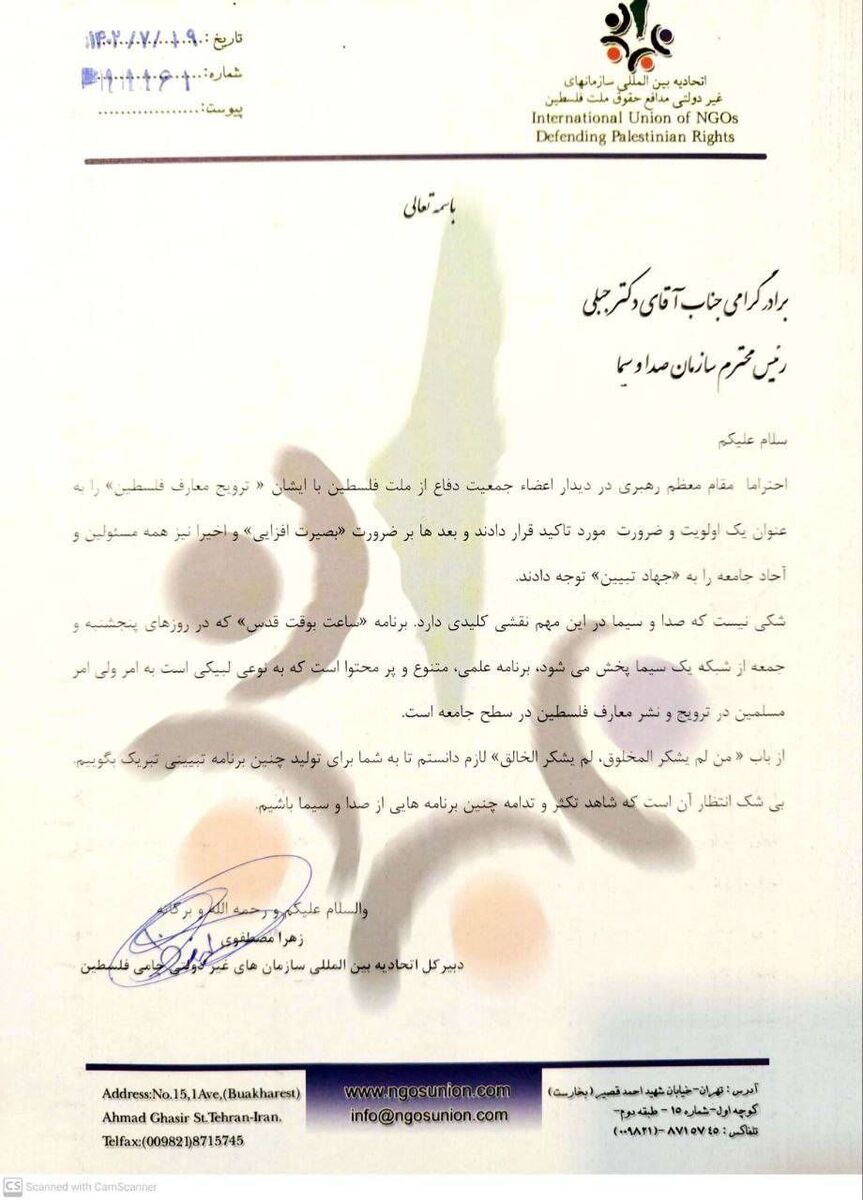 تاریخ : ۱۴۰۲/۷/۱۹
شماره:
پیوست:
اتحادیه بین المللی سازمانهای
غیر دولتی مدافع حقوق ملت فلسطین
International Union of NGOs
Defending Palestinian Rights
باسمه تعالی
برادر گرامی جناب آقای دکتر جبلی
رئیس محترم سازمان صدا و سیما
سلام علیکم
احتراما مقام معظم رهبری در دیدار اعضاء جمعیت دفاع از ملت فلسطین با ایشان « ترویج معارف فلسطین» را به
عنوان یک اولویت و ضرورت مورد تاکید قرار دادند و بعد ها بر ضرورت «بصیرت افزایی» و اخیرا نیز همه مسئولین و
آحاد جامعه را به «جهاد تبیین» توجه دادند.
شکی نیست که صدا و سیما در این مهم نقشی کلیدی دارد. برنامه «ساعت بوقت قدس» که در روزهای پنجشنبه و
جمعه از شبکه یک سیما پخش می شود، برنامه علمی، متنوع و پر محتوا است که به نوعی لبیکی است به امر ولی امر
مسلمین در ترویج و نشر معارف فلسطین در سطح جامعه است.
از باب « من لم یشکر المخلوق، لم یشکر الخالق» لازم دانستم تا به شما برای تولید چنین برنامه تبیینی تبریک بگوییم.
بی شک انتظار آن است که شاهد تکثر و تدامه چنین برنامه هایی از صدا و سیما باشیم.
والسلام علیکم و رحمه الله و برکاته
زهرا مصطفوی
دبیر کل اتحادیه بین المللی سازمان های غیر دولتی حامی فلسطین
Address:No.15,1Ave,(Buakharest)
Ahmad Ghasir St.Tehran-Iran.
Telfax:(009821)8715745
www.ngosunion.com
info@ngosunion.com
آدرس : تهران-خیابان شهید احمد قصیر (بخارست)
کوچه اول-شماره ۱۵ - طبقه دوم-
تلفاکس : ۸۷۱۵۷۴۵ -(۰۰۹۸۲۱)
CS Scanned with CamScanner